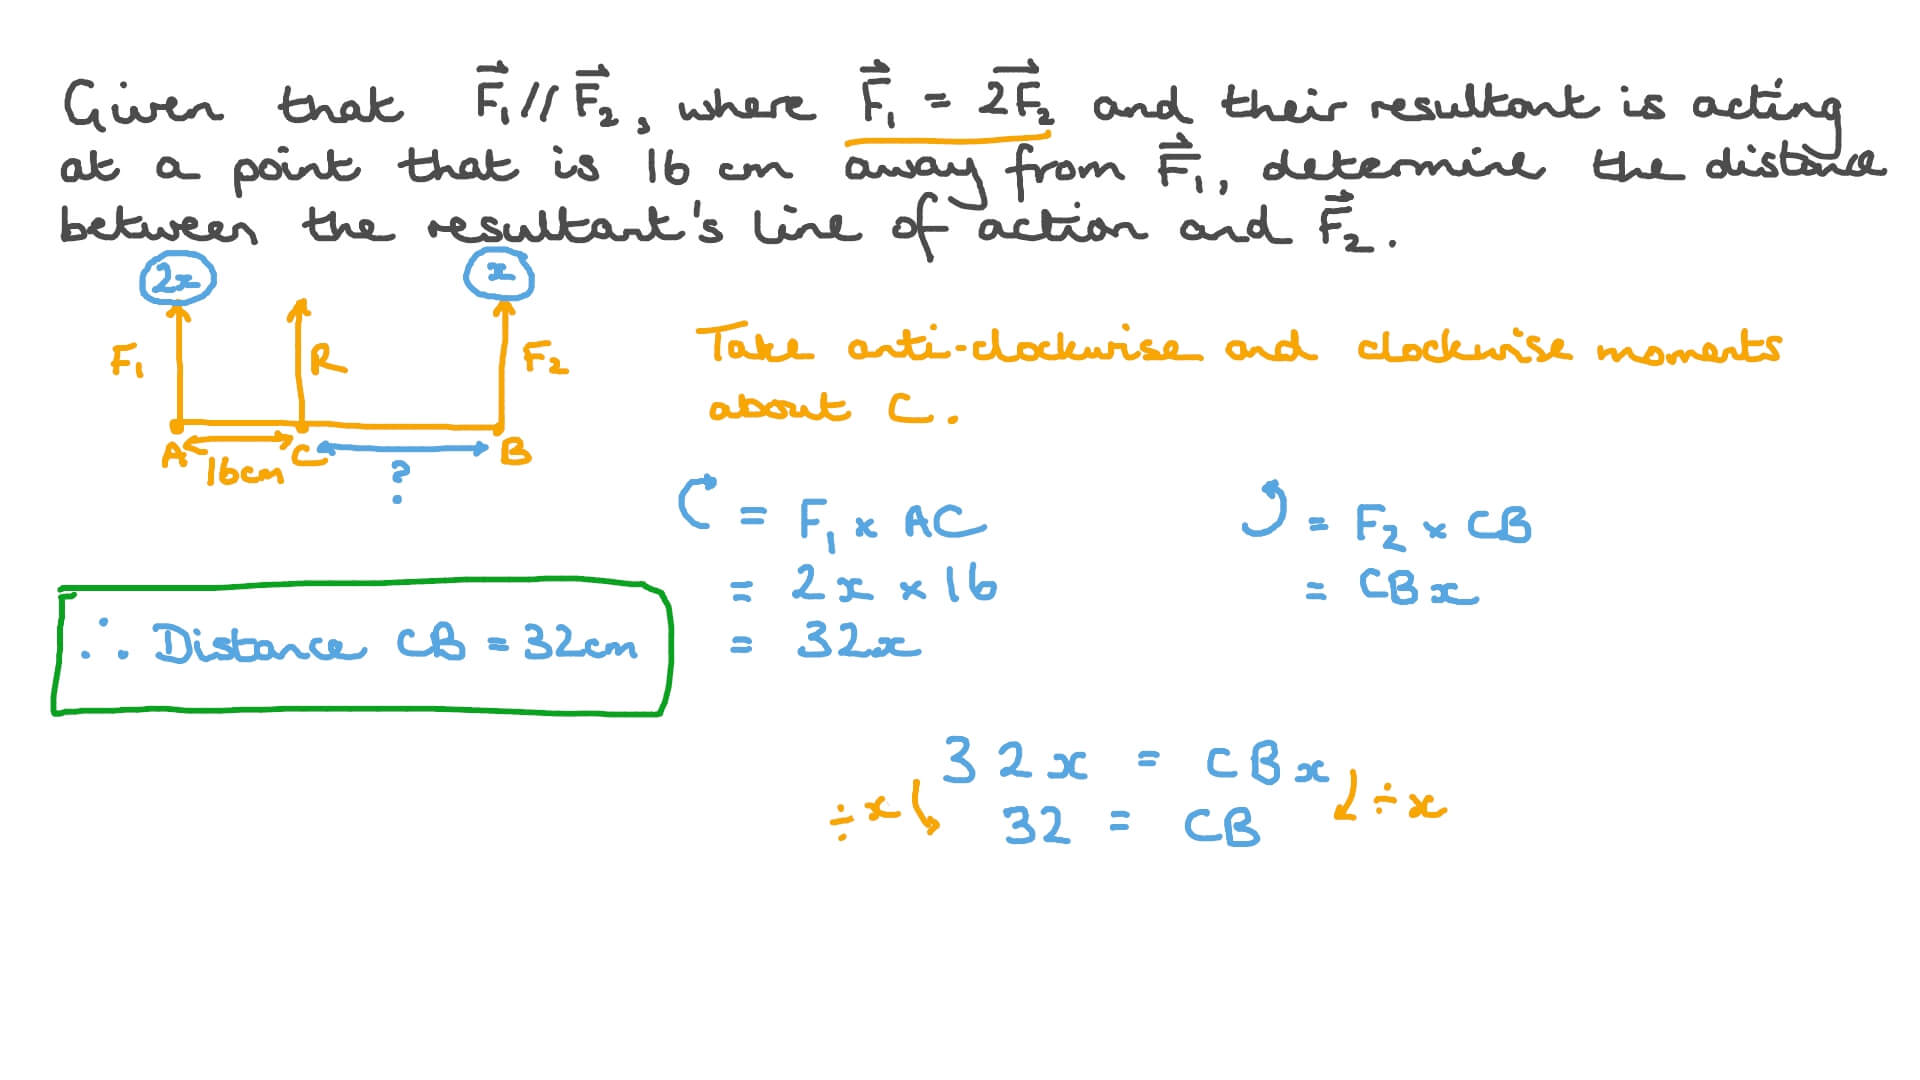 Given that F₁ // F₂, where F₁ = 2F₂ and their resultant is acting
at a point that is 16 cm away from F₁, determine the distance
between the resultant's line of action and F₂.
2x
x
F₁
R
F₂
A
C
B
16cm
?
Take anti-clockwise and clockwise moments
about C.
= F₁ × AC
= 2x × 16
= 32x
= F₂ × CB
= CBx
∴ Distance CB = 32cm
32x = CBx
÷x
32 = CB
÷x